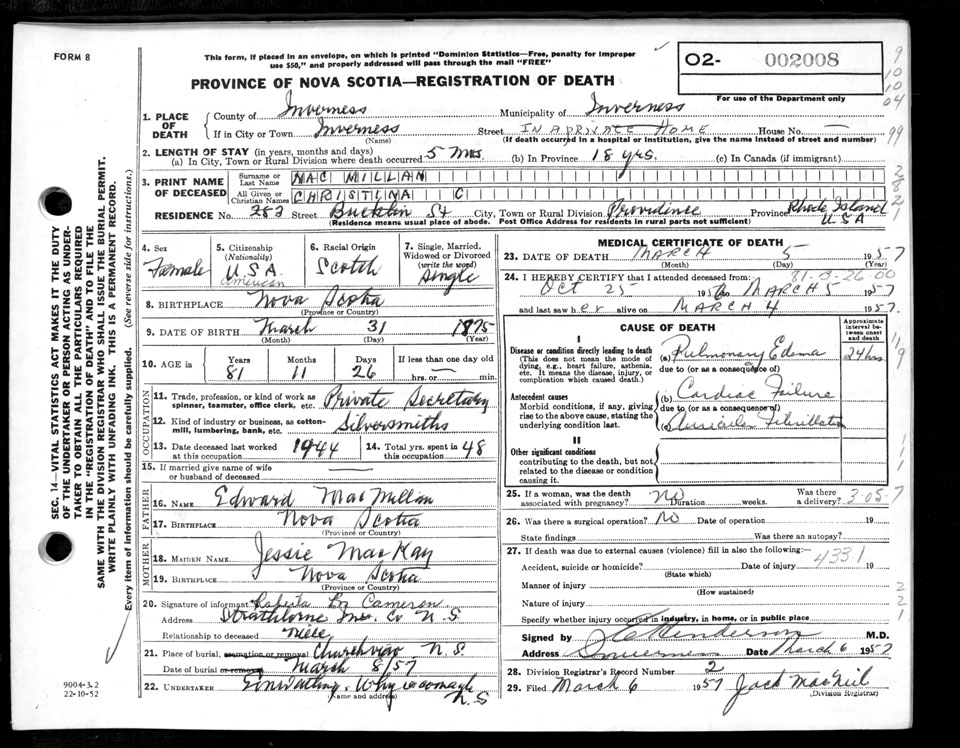 FORM 8
This form, if placed in an envelope, on which is printed "Dominion Statistics—Free, penalty for improper
use $50," and properly addressed will pass through the mail "FREE"
02- 002008
For use of the Department only
PROVINCE OF NOVA SCOTIA—REGISTRATION OF DEATH
9
10
10
04
99
2
8
2
1
SEC. 14—VITAL STATISTICS ACT MAKES IT THE DUTY
OF THE UNDERTAKER OR PERSON ACTING AS UNDER-
TAKER TO OBTAIN ALL THE PARTICULARS REQUIRED
IN THE "REGISTRATION OF DEATH" AND TO FILE THE
SAME WITH THE DIVISION REGISTRAR WHO SHALL ISSUE THE BURIAL PERMIT.
WRITE PLAINLY WITH UNFADING INK. THIS IS A PERMANENT RECORD.
Every item of information should be carefully supplied. (See reverse side for instructions.)
1. PLACE OF DEATH
County of Inverness Municipality of Inverness
If in City or Town Inverness Street IN A PRIVATE HOME House No. —
(Name) (If death occurred in a hospital or institution, give the name instead of street and number)
2. LENGTH OF STAY (in years, months and days)
(a) In City, Town or Rural Division where death occurred 5 Mos. (b) In Province 18 yrs. (c) In Canada (if immigrant)
3. PRINT NAME OF DECEASED
Surname or Last Name MAC MILLAN
All Given or Christian Names CHRISTINA C
RESIDENCE No. 282 Street Bucklin St City, Town or Rural Division Providence Province Rhode Island
USA
(Residence means usual place of abode. Post Office Address for residents in rural parts not sufficient)
4. Sex Female
5. Citizenship (Nationality) U.S.A. American
6. Racial Origin Scotch
7. Single, Married, Widowed or Divorced (write the word) Single
8. BIRTHPLACE Nova Scotia
(Province or Country)
9. DATE OF BIRTH March 31 1875
(Month) (Day) (Year)
10. AGE in Years 81 Months 11 Days 26 If less than one day old hrs. or — min.
OCCUPATION
11. Trade, profession, or kind of work as spinner, teamster, office clerk, etc. Private Secretary
12. Kind of industry or business, as cotton-mill, lumbering, bank, etc. Silversmiths
13. Date deceased last worked at this occupation 1944 14. Total yrs. spent in this occupation 48
15. If married give name of wife or husband of deceased —
FATHER
16. NAME Edward MacMillan
17. BIRTHPLACE Nova Scotia
(Province or Country)
MOTHER
18. MAIDEN NAME Jessie MacKay
19. BIRTHPLACE Nova Scotia
(Province or Country)
20. Signature of informant Roberta Cameron
Address Strathlorne Inv. Co N.S.
Relationship to deceased Niece
21. Place of burial, cremation or removal Churchview, N.S.
Date of burial or removal March 8/57
22. UNDERTAKER Whycocomagh
N.S
(Name and address)
9004-3.2
22-10-52
MEDICAL CERTIFICATE OF DEATH
23. DATE OF DEATH MARCH 5 1957
(Month) (Day) (Year)
24. I HEREBY CERTIFY that I attended deceased from:
81-3-26 00
OCT 25 1956 to MARCH 5 1957
and last saw her alive on MARCH 4 1957.
CAUSE OF DEATH
Approximate interval between onset and death
I
Disease or condition directly leading to death
(This does not mean the mode of dying, e.g., heart failure, asthenia, etc. It means the disease, injury, or complication which caused death.)
(a) Pulmonary Edema 24 hrs
due to (or as a consequence of)
Antecedent causes
Morbid conditions, if any, giving rise to above cause, stating the underlying condition last.
(b) Cardiac Failure
due to (or as a consequence of)
(c) Auricular Fibrillation
II
Other significant conditions
contributing to the death, but not related to the disease or condition causing it.
25. If a woman, was the death associated with pregnancy? No Duration weeks. Was there a delivery? 3-05-7
26. Was there a surgical operation? No Date of operation 19
State findings Was there an autopsy?
27. If death was due to external causes (violence) fill in also the following:—
4331
Accident, suicide or homicide? Date of injury 19
(State which)
Manner of injury
(How sustained)
Nature of injury
Specify whether injury occurred in industry, in home, or in public place
Signed by Henderson M.D.
Address Inverness Date March 6 1957
28. Division Registrar's Record Number 2
29. Filed March 6 1957 Jack MacNeil
(Division Registrar)